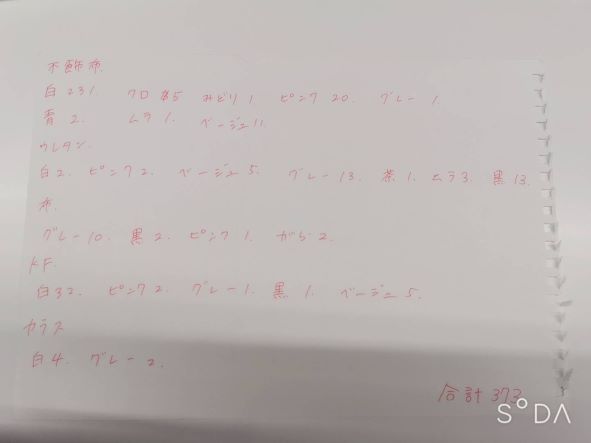 不飾布.
白231. クロ5 みどり1 ピンク20. グレー1.
青2. ムラ1. ベージュ11.
ウレタン.
白2. ピンク2. ベージュ5. グレー13. 茶1. ムラ3. 黒13.
布.
グレー10. 黒2. ピンク1. がら2.
KF.
白32. ピンク2. グレー1. 黒1. ベージュ5.
カラス
白4. グレー2.
合計373
SODA